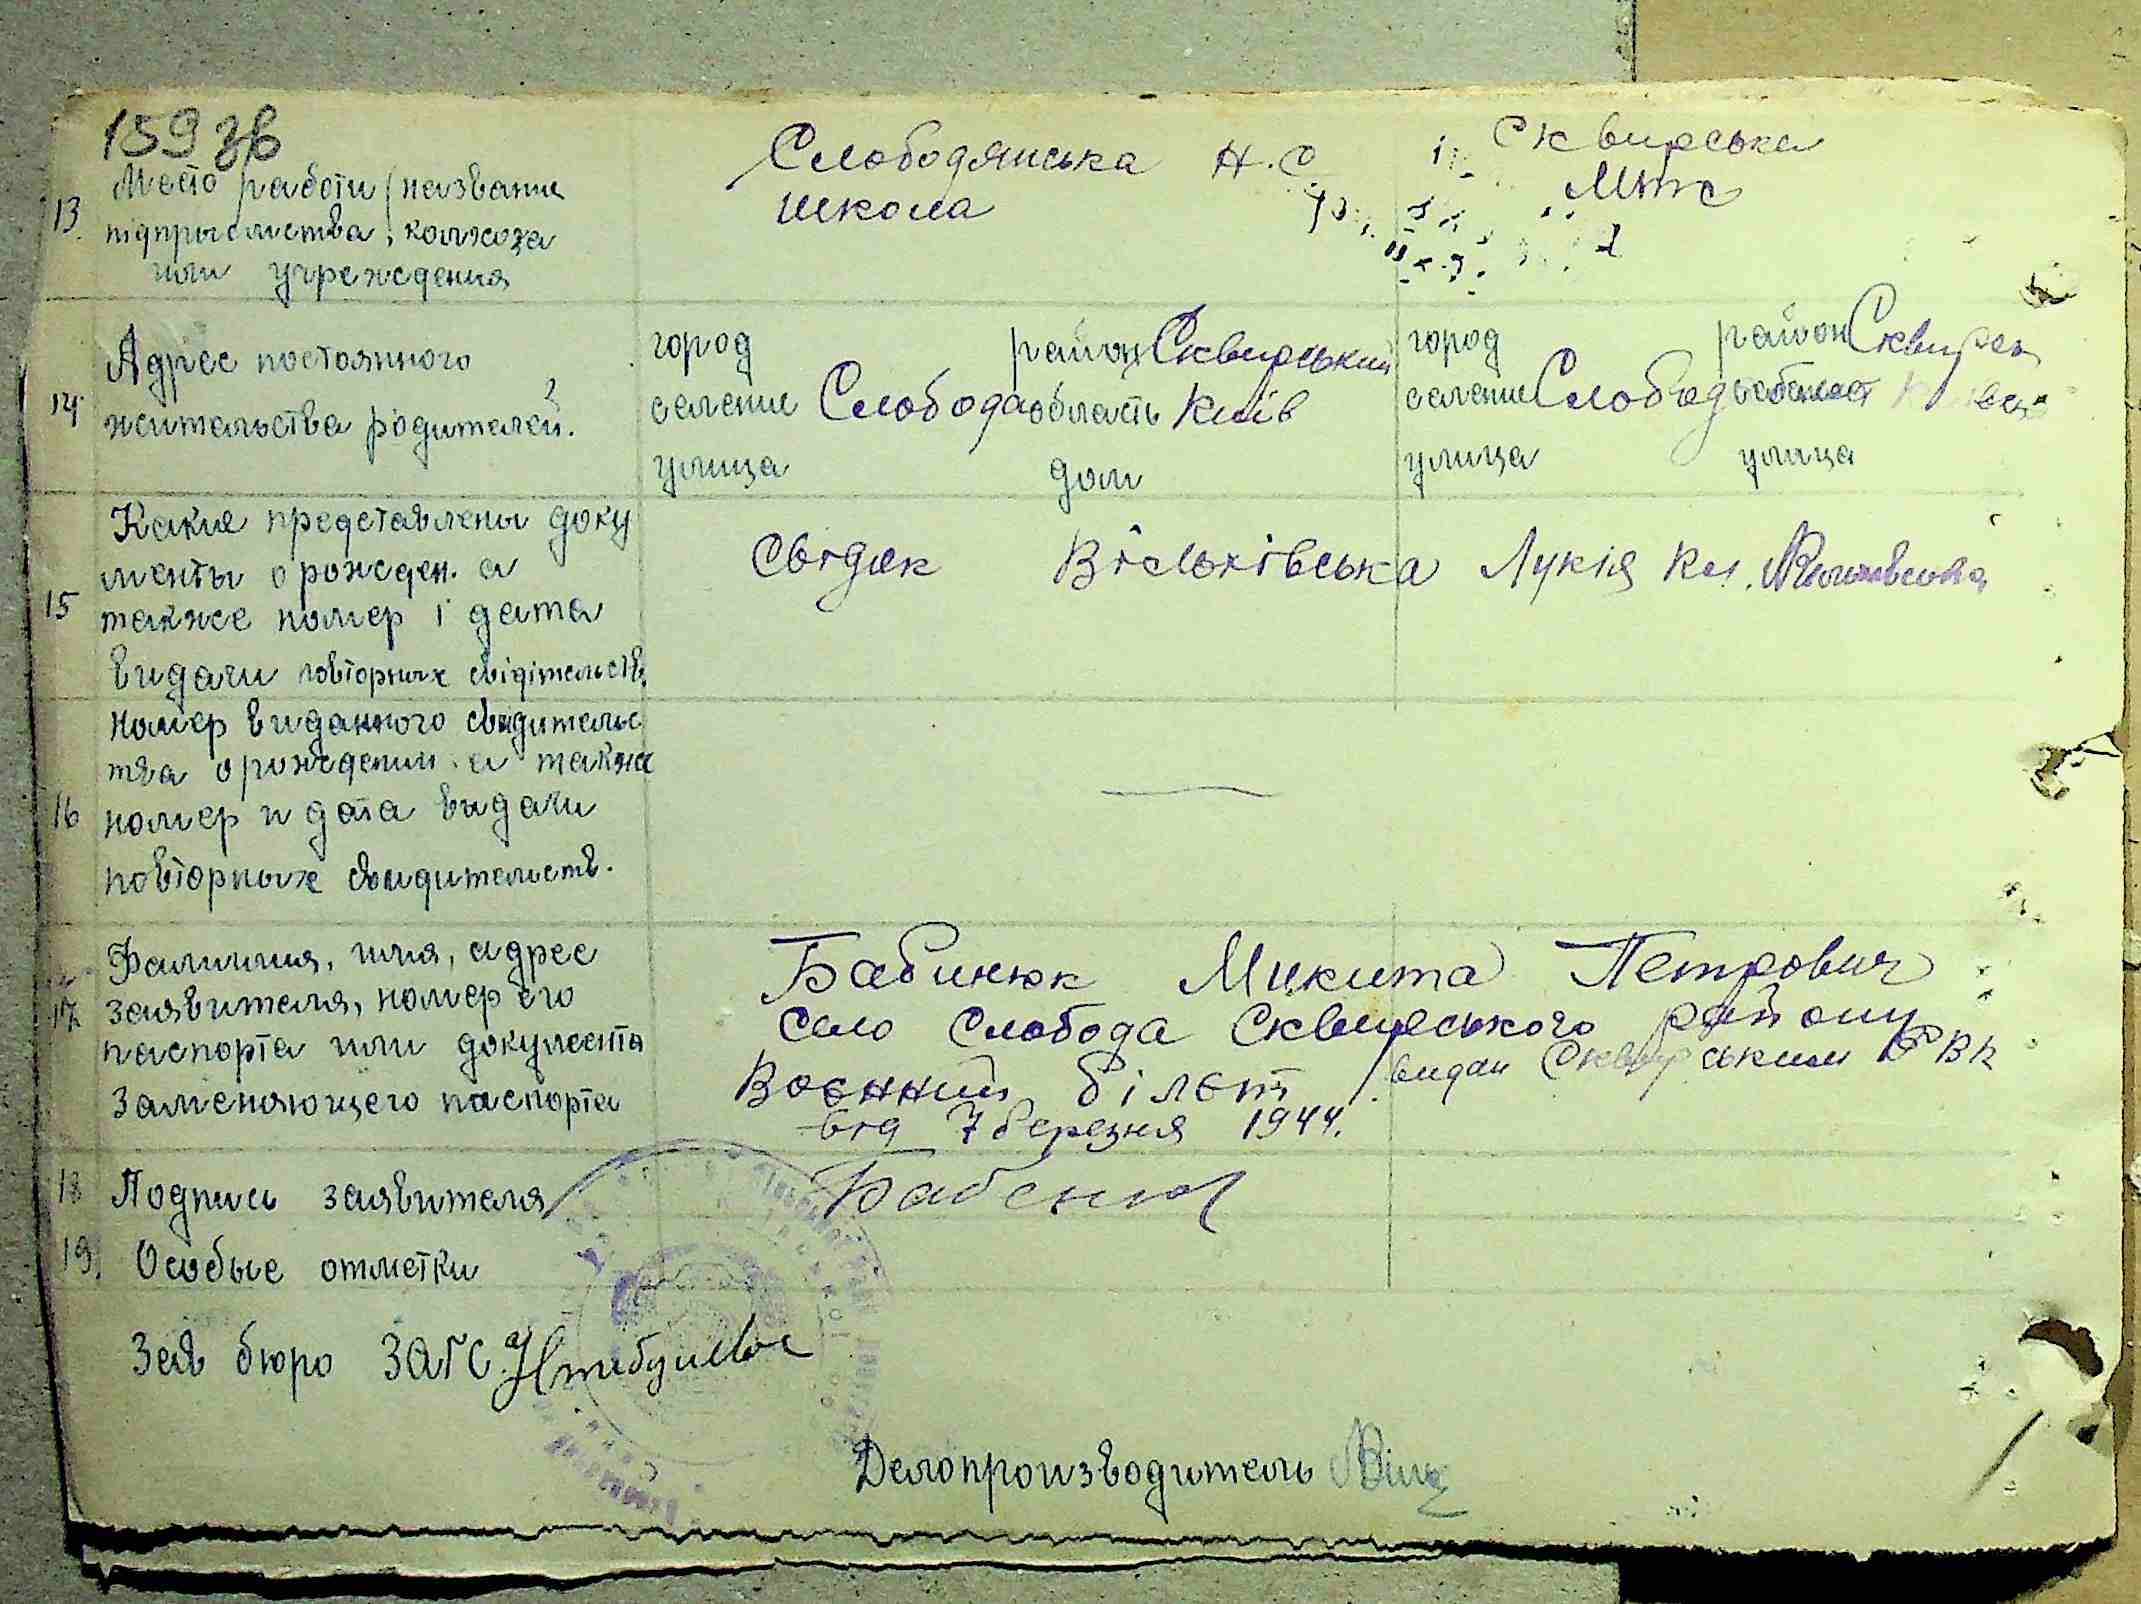 159 зв
13. Место работи (название
підприємства, колхоза
или учреждения
Слободянська Н.С
школа
Сквирська
Мтс
14 Адрес постоянного
жительства родителей.
город район Сквирський
селение Слобода область Київ
улица дом
город район Сквирск
селение Слобода
улица улица
15 Какие представлены доку
менты о рожден. а
также номер і дата
видачи повторных свідітельств.
Свідок Вільхівська Лукія Кл.
16 Номер виданного свидительс
тва о рождении а также
номер и дата видачи
повторных свидительств.
17 Фамилия, имя, адрес
заявителя, номер его
паспорта или документа
заменяющего паспорта
Бабинюк Микита Петрович
село Слобода Сквирського району
Воєнний білєт видан Сквирським РВК
від 7 березня 1944.
18 Подпись заявителя Бабенюк
19. Особые отметки
Зав бюро ЗАГС
Делопроизводитель